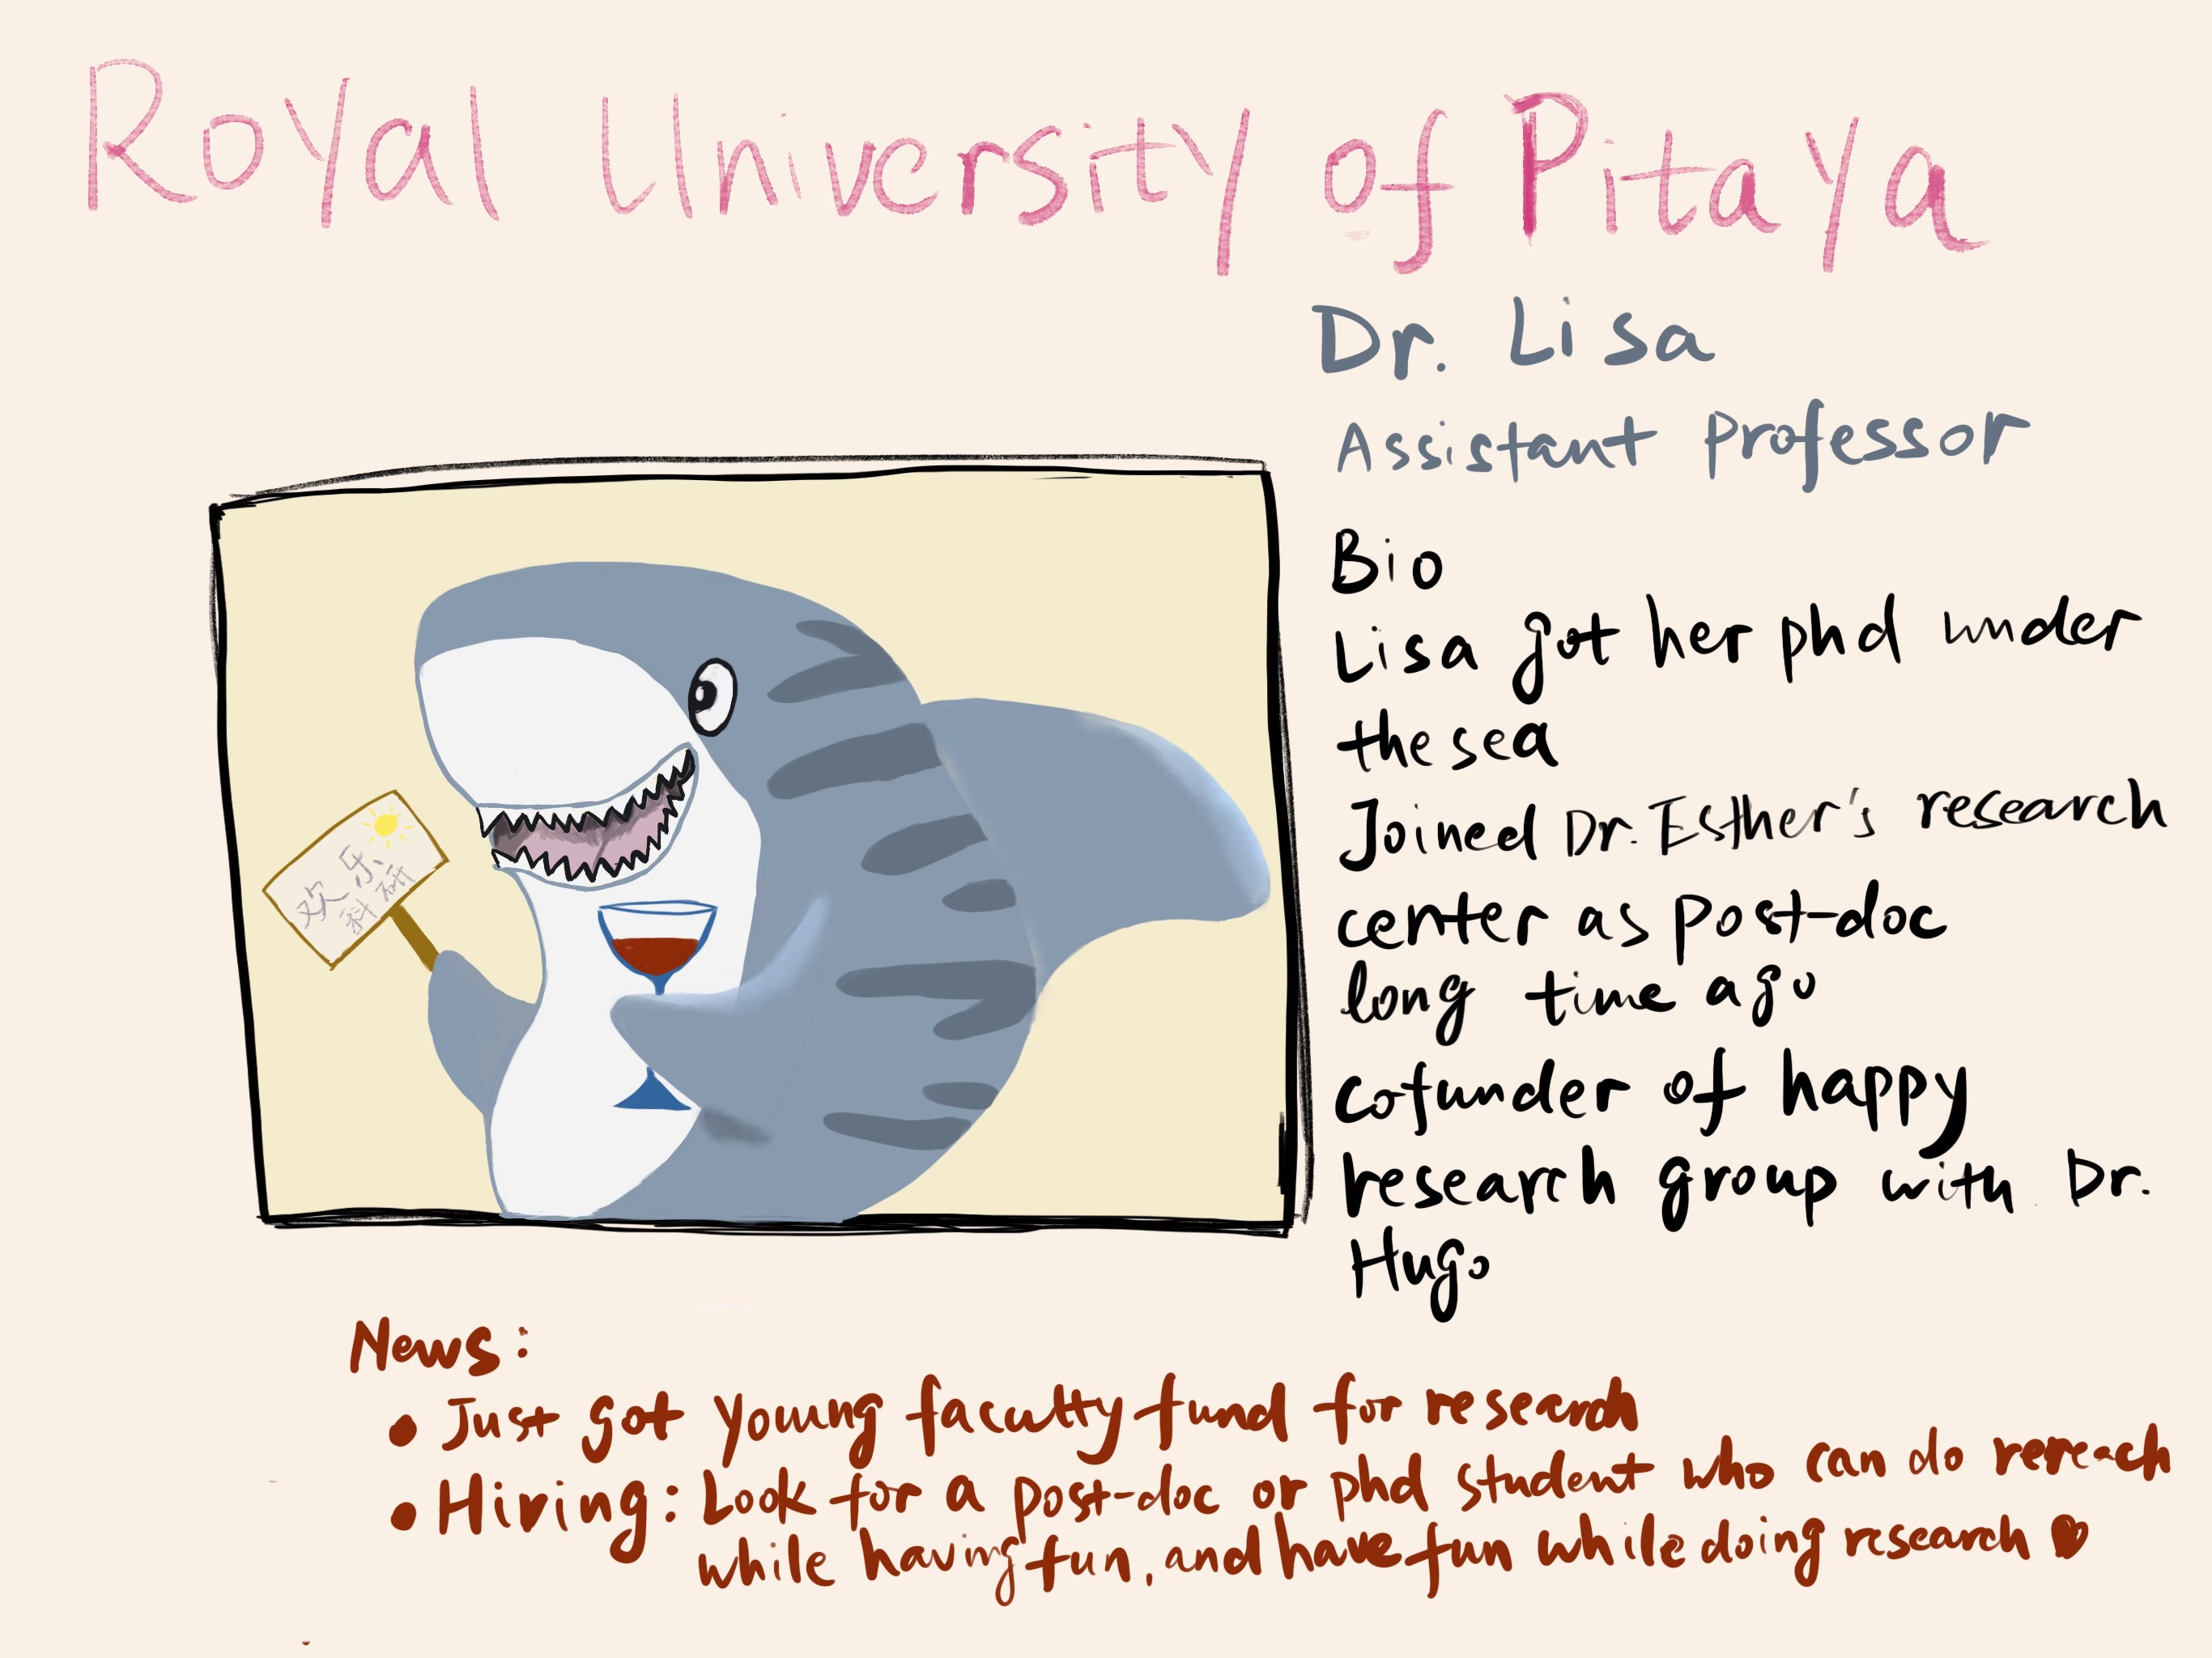 Royal University of Pitaya
Dr. Lisa
Assistant professor
Bio
Lisa got her phd under
the sea
Joined Dr. Esther's research
center as post-doc
long time ago
cofunder of happy
research group with Dr.
Hugo
欢乐
科研
News:
• Just got young faculty fund for research
• Hiring: Look for a post-doc or phd student who can do rereach
while having fun, and have fun while doing research